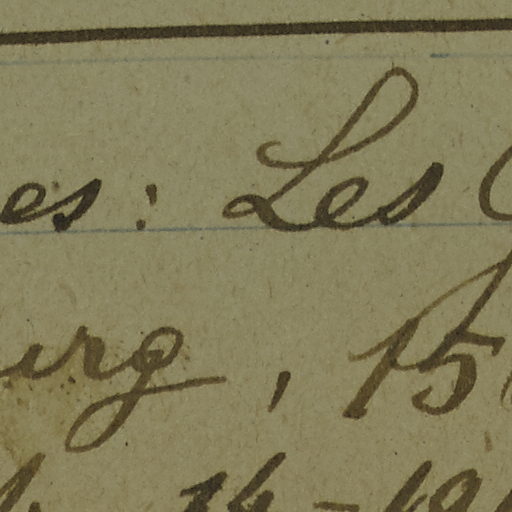 es: Les
urg, 15
14-19